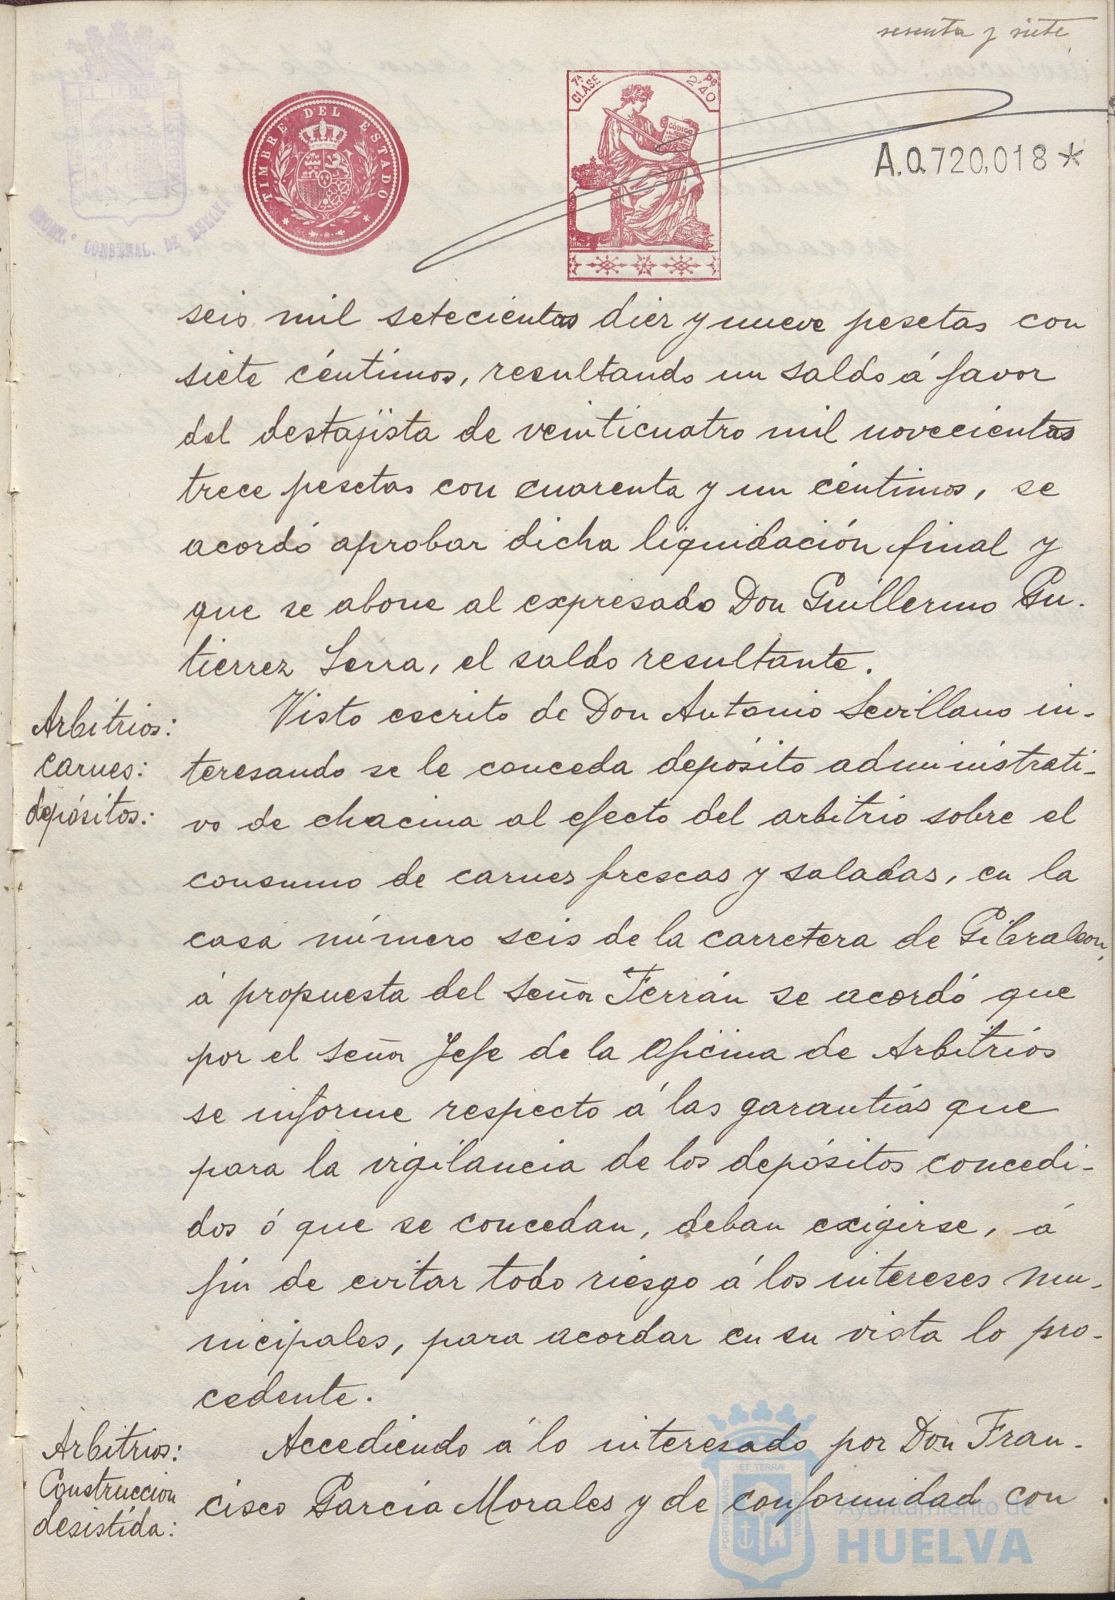 sesenta y siete
TIMBRE DEL ESTADO
7ª CLASE
2'40 Pts
CODIGO
A.0.720,018*
AYUNTº CONSTNAL. DE HUELVA
seis mil setecientas diez y nueve pesetas con
siete céntimos, resultando un saldo á favor
del destajista de veinticuatro mil novecientas
trece pesetas con cuarenta y un céntimos, se
acordó aprobar dicha liquidación final y
que se abone al expresado Don Guillermo Gu-
tierrez Serra, el saldo resultante.
Arbitrios:
carnes:
depósitos:
Visto escrito de Don Antonio Sevillano in-
teresando se le conceda depósito administrati-
vo de chacina al efecto del arbitrio sobre el
consumo de carnes frescas y saladas, en la
casa número seis de la carretera de Gibraleon,
á propuesta del señor Terrán se acordó que
por el señor Jefe de la Oficina de Arbitrios
se informe respecto á las garantías que
para la vigilancia de los depósitos concedi-
dos ó que se concedan, deban exigirse, á
fin de evitar todo riesgo á los intereses mu-
nicipales, para acordar en su vista lo pro-
cedente.
Arbitrios:
Construccion
desistida:
Accediendo á lo interesado por Don Fran-
cisco García Morales y de conformidad con
Ayuntamiento de
HUELVA